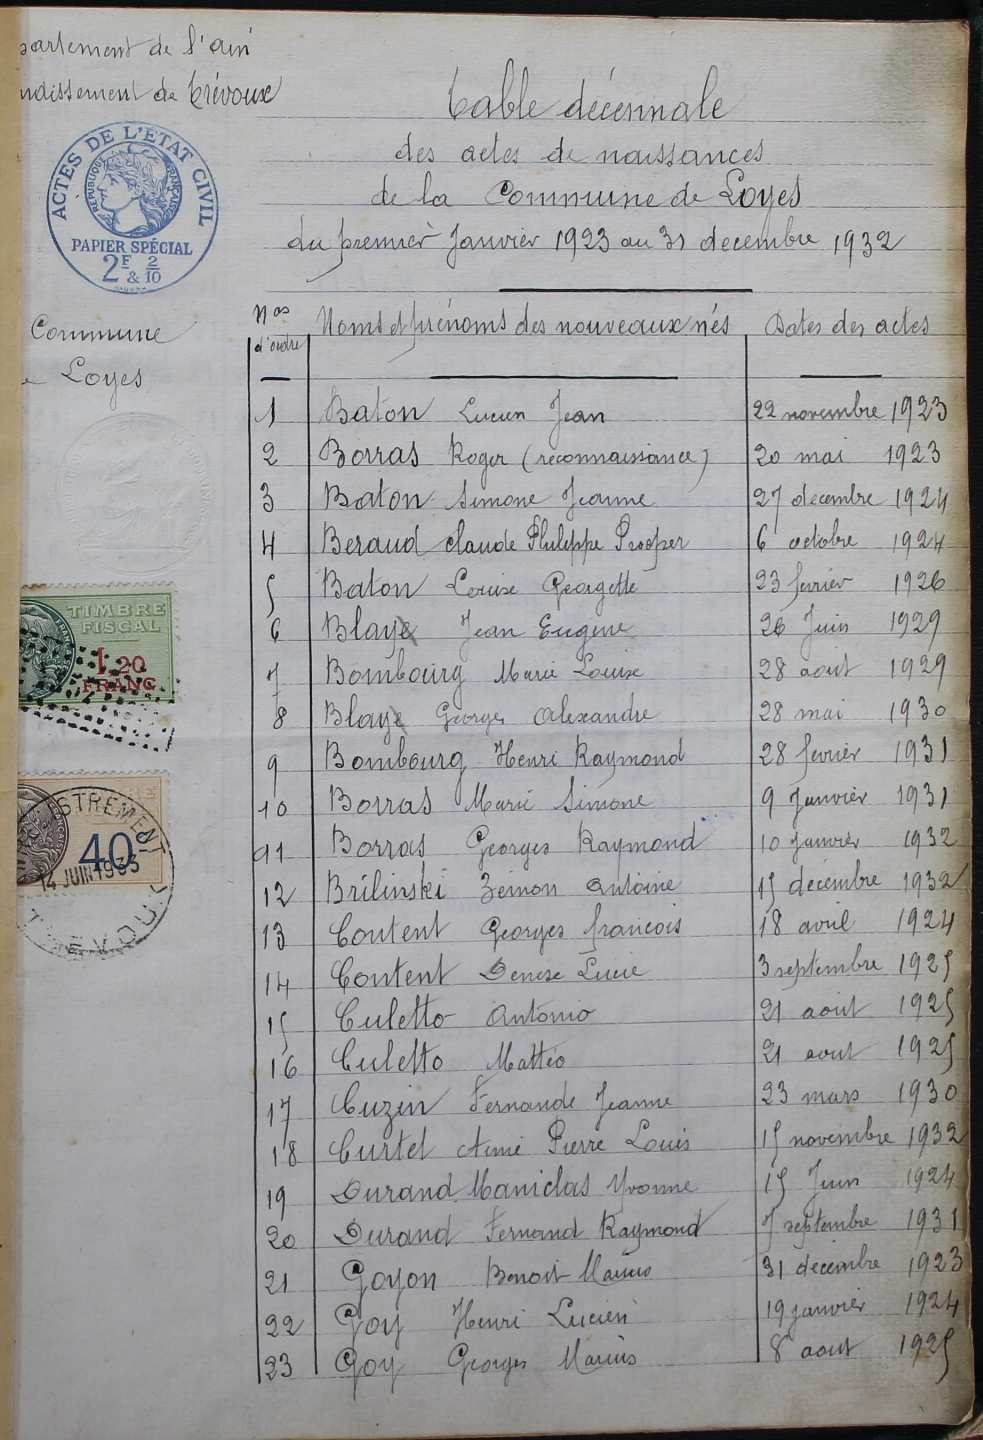 partement de l'ain
ndissement de Trévoux
ACTES DE L'ÉTAT CIVIL
RÉPUBLIQUE FRANÇAISE
PAPIER SPÉCIAL
2F & 2/10
Commune
Loyes
TIMBRE
FISCAL
1,20
FRANC
STREMENT
40
14 JUIN 1933
TREVOUX
Table décennale
des actes de naissances
de la Commune de Loyes
du premier Janvier 1923 au 31 decembre 1932
Nos d'ordre Noms et prénoms des nouveaux nés Dates des actes
1 Baton Lucien Jean 22 novembre 1923
2 Borras Roger (reconnaissance) 20 mai 1923
3 Baton Simone Jeanne 27 decembre 1924
4 Beraud claude Philippe Prosper 6 octobre 1924
5 Baton Louise Georgette 23 fevrier 1926
6 Blaye Jean Eugene 26 Juin 1929
7 Bombourg Marie Louise 28 aout 1929
8 Blaye Georges Alexandre 28 mai 1930
9 Bombourg Henri Raymond 28 fevrier 1931
10 Borras Marie Simone 9 Janvier 1931
11 Borras Georges Raymond 10 Janvier 1932
12 Brilinski Zeinon Antoine 15 decembre 1932
13 Content Georges francois 18 avril 1924
14 Content Denise Lucie 3 septembre 1925
15 Culetto Antonio 21 aout 1925
16 Culetto Mattéo 21 aout 1925
17 Cuzin Fernande Jeanne 23 mars 1930
18 Curtel Aimé Pierre Louis 15 novembre 1932
19 Durand Maniclas Yvonne 15 Juin 1924
20 Durand Fernand Raymond 7 septembre 1931
21 Goyon Benoit Marius 31 décembre 1923
22 Goy Henri Lucien 19 janvier 1924
23 Goy Georges Marius 8 aout 1925